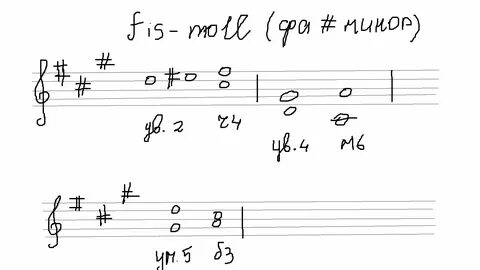 fis-moll (фа # минор)
ув. 2 ч4 ув. 4 м6
ум. 5 б3